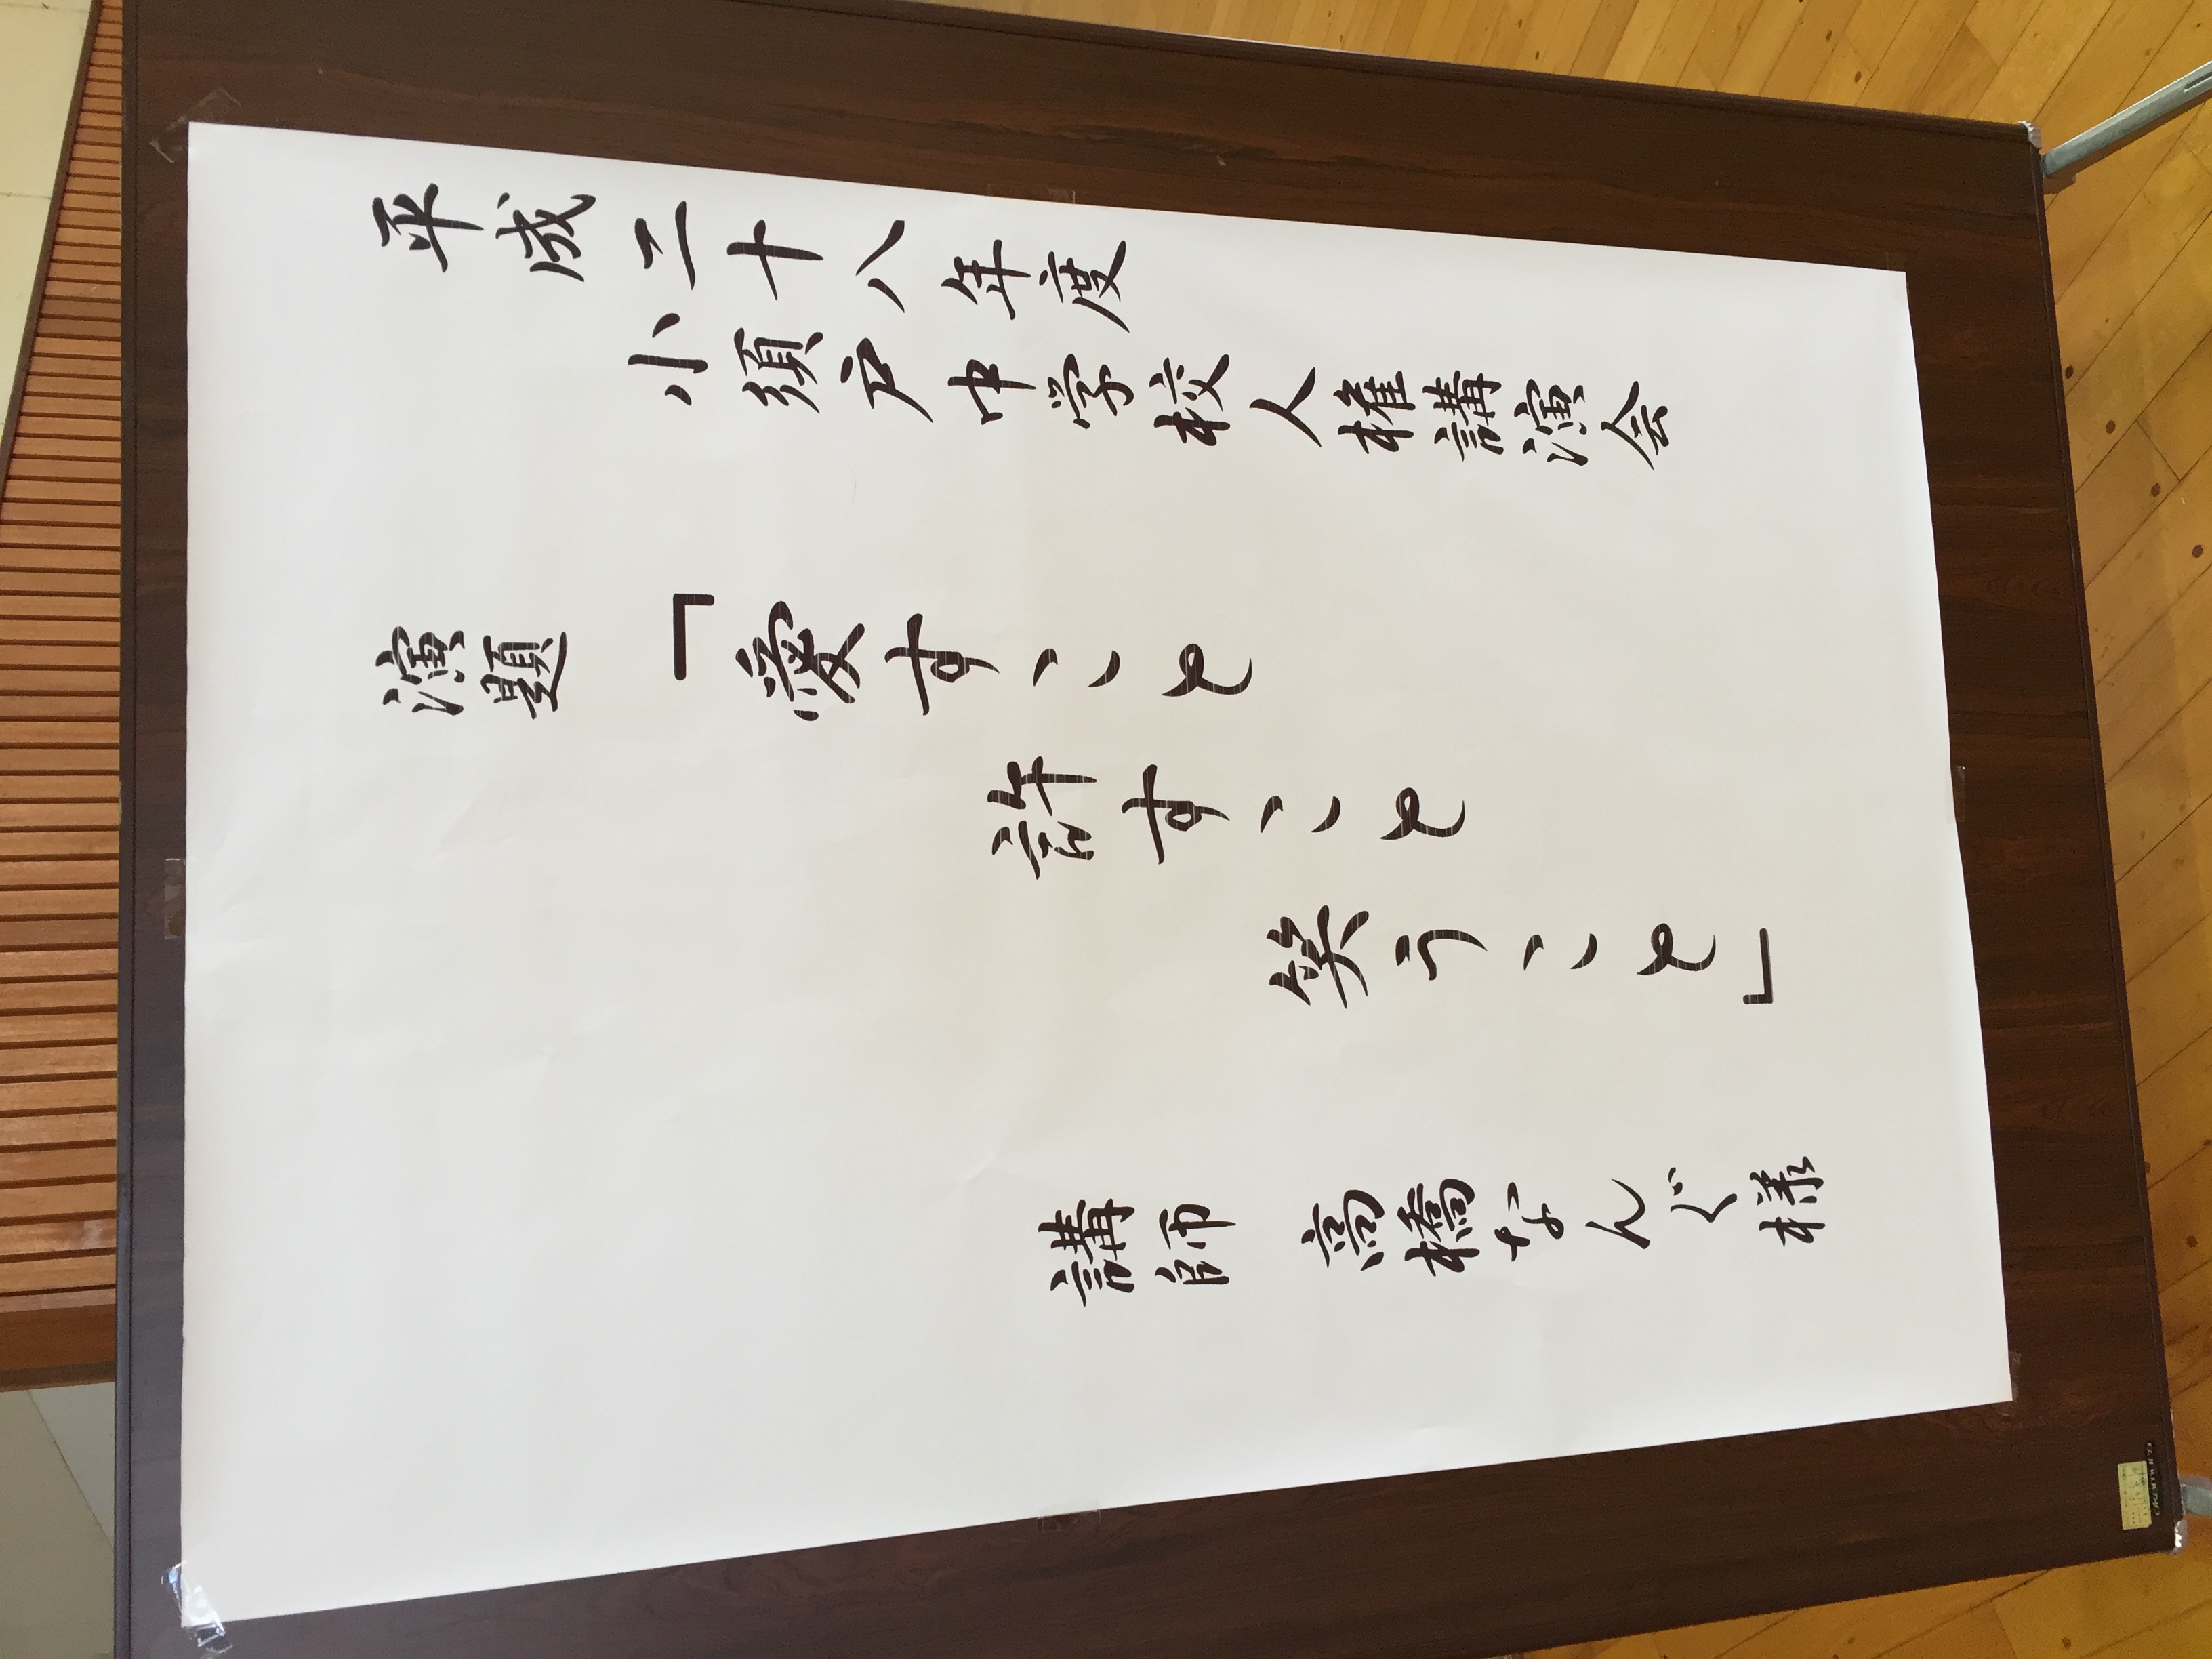 平成二十八年度
小須戸中学校人権講演会
演題 「愛すこと
許すこと
笑うこと」
講師 高橋なんぐ様